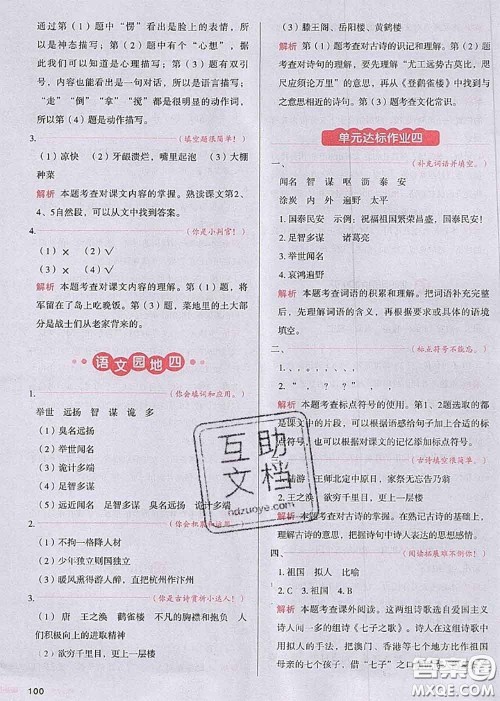 通过第（1）题中"愣"看出是脸上的表情，所
以是神态描写；第（2）题中有个"心想"，据
此我们可以知道是心理描写；第（3）题有双引
号，内容也能看出是一句对话，所以是语言描写；
"走""倒""拿""搅"都是很明显的动作词，
所以第（4）题是动作描写。
3. （填空题很简单！）
（1）凉快 （2）牙龈溃烂，嘴里起泡 （3）大棚
种菜
解析 本题考查对课文内容的掌握。熟读课文第2、
4、5自然段，可以从文中找到答案。
4. （你是小判官！）
（1）× （2）√
（3）× （4）√
解析 本题考查对课文内容的理解。第（1）题，将
军留在了岛上吃晚饭。第（3）题，菜地里的土大部
分是战士们从老家背来的。
语文园地四
1. （你会填词和应用。）
举世 远扬 智 谋 诡 多
（1）臭名远扬
（2）举世闻名
（3）诡计多端
（4）足智多谋
（5）远近闻名 足智多谋 臭名远扬 诡计多端
2. （你会积累和应用。）
（1）不拘一格降人材
（2）少年独立则国独立
（3）暖风熏得游人醉，直把杭州作汴州
3. （你是古诗赏析小达人！）
（1）唐 王之涣 鹳雀楼 不凡的胸襟和抱负 人
们积极向上的进取精神
（2）欲穷千里目，更上一层楼
100
（3）滕王阁、岳阳楼、黄鹤楼
解析 第（1）题考查对古诗的识记和理解。第（2）题
考查对诗句的理解，要先理解"尤工远势古莫比，咫
尺应须论万里"的意思，再从《登鹳雀楼》中找到与
之意思相近的诗句。第（3）题考查文化常识。
单元达标作业四
一、 （补充词语并填空。）
闻名 智谋 呕 沥 泰 安
涂炭 内 外 遍野 太平
1. 国泰民安 示例：祝福祖国繁荣昌盛，国泰民安。
2. 足智多谋 诸葛亮
3. 举世闻名
4. 哀鸿遍野
解析 本题考查词语的积累和理解。把词语补充完整
后，先理解词语的意思，然后根据词语的意思和语境
填空。
二、 （标点符号不能忘。）
解析 本题考查标点符号的使用。第1、2题选取的都
是课文中的片段，可以根据语感给句子加上合适的标
点，也可以根据对课文的记忆添加标点。
（古诗填空很简单。）
1. 陆游 示儿 王师北定中原日，家祭无忘告乃翁
2. 王之涣 欲穷千里目，更上一层楼
解析 本题考查对古诗的掌握。在熟记古诗的基础上，
理解古诗的意思，感悟诗中诗人表达的思想感情。
四、 （阅读拓展难不倒你！）
1. 祖国 拟人 比喻
2. C 3. B 4. 祖国
解析 本题考查课外阅读。这两组诗歌选自爱国主义
诗人闻一多的组诗《七子之歌》。作者以拟人的手法，
互助
文档
ndzuoye.com
答案圈
MXQE.COM